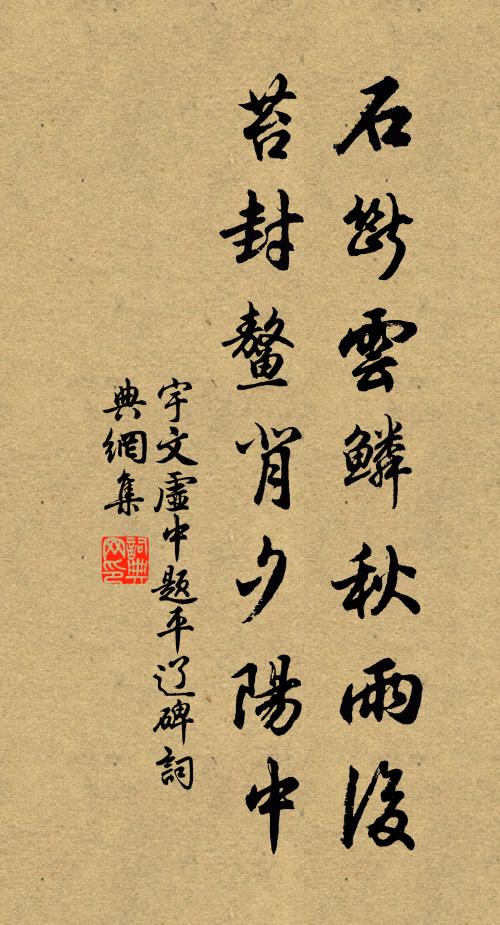 石斷雲鱗秋雨後
苔封鰲背夕陽中
宇文虛中題平辽碑詞
典網集
詞典
网印